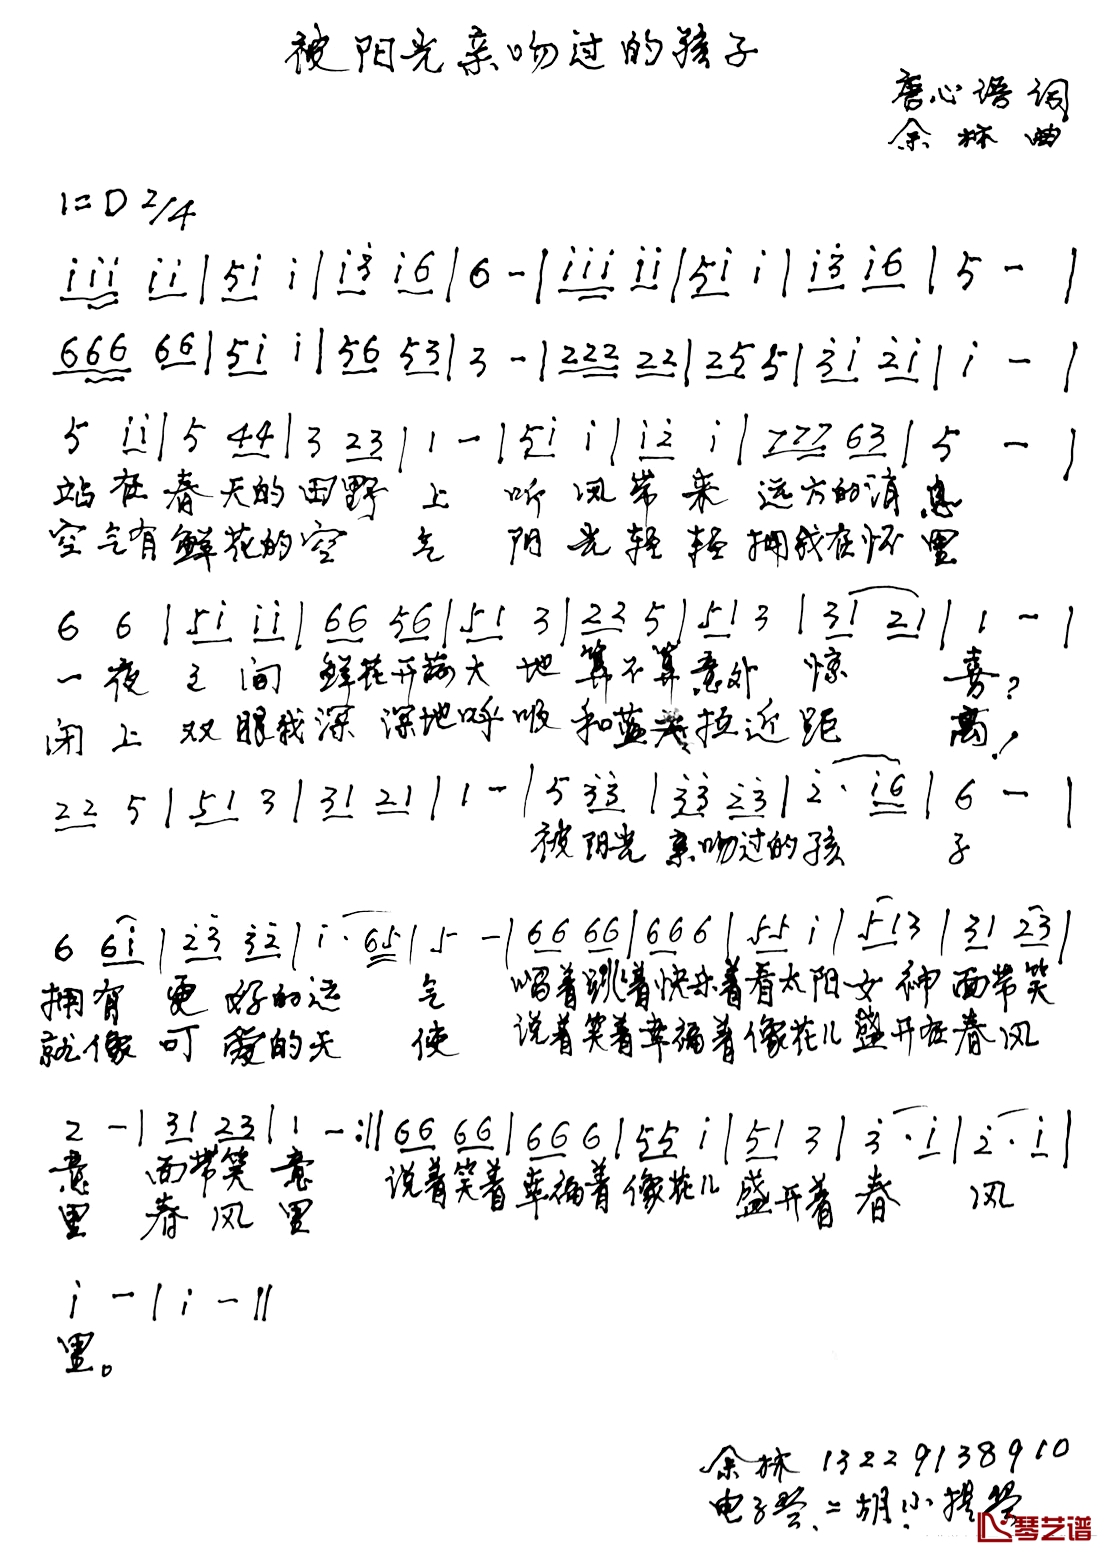 被阳光亲吻过的孩子
唐心语 词
余林 曲
1=D 2/4
i i i i i | 5 i i | i 3 i 6 | 6 - | i i i i i | 5 i i | i 3 i 6 | 5 - |
6 6 6 6 6 | 5 i i | 5 6 5 3 | 3 - | 2 2 2 2 2 | 2 5 5 | 2 i 2 i | i - |
5 i i | 5 4 4 | 3 2 3 | 1 - | 5 i i | i 2 i | 7 7 7 6 3 | 5 - |
站在春天的田野上 听风带来远方的消息
空气有鲜花的空气 阳光轻轻拥我在怀里
6 6 | 5 i i i | 6 6 5 6 | 5 1 3 | 2 2 5 | 5 1 3 | 3 1 2 1 | 1 - |
一夜之间 鲜花开满大地 算不算意外惊喜?
闭上双眼我深深地呼吸 和蓝天拉近距离!
2 2 5 | 5 1 3 | 3 1 2 1 | 1 - | 5 3 3 | 3 3 2 3 | 2 · i 6 | 6 - |
被阳光亲吻过的孩子
6 6 i | 2 3 3 2 | i · 6 5 | 5 - | 6 6 6 6 | 6 6 6 | 5 5 i | 5 1 3 | 3 1 2 3 |
拥有更好的运气 唱着跳着快乐着看太阳女神面带笑
就像可爱的天使 说着笑着幸福着像花儿盛开在春风
2 - | 3 1 2 3 | 1 - :|| 6 6 6 6 | 6 6 6 | 5 5 i | 5 1 3 | 3 · i | 2 · i |
意 面带笑意 说着笑着幸福着像花儿盛开着春风
里 春风里
i - | i - ||
里。
余林 13229138910
电子琴、二胡、小提琴
琴艺谱